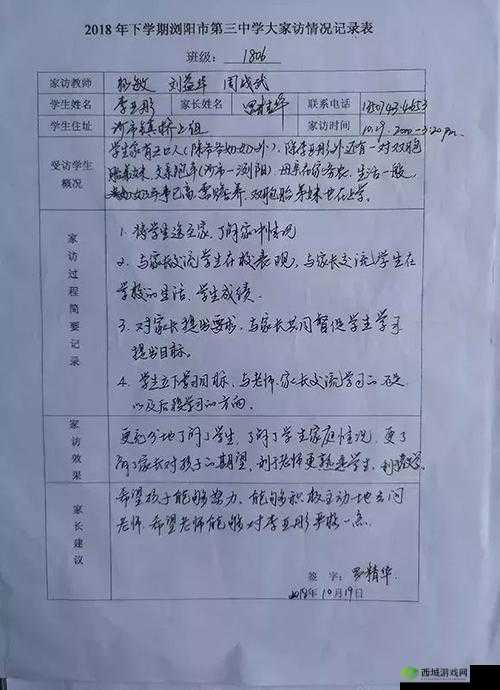 2018年下学期浏阳市第三中学大家访情况记录表
班级：1806
家访教师 杨敏 刘益华 周成武
学生姓名 李亚彤 家长姓名 罗精华 联系电话
学生住址 沙市镇桥上组 家访时间 10.19
受访学生概况
学生家有五口人（除爷爷奶奶外），除李亚彤外还有一对双胞
胎弟妹，父亲跑车（沙市—浏阳），母亲在家务农，生活一般，
爷奶年事已高需赡养，双胞胎弟妹也在上学。
家访过程简要记录
1. 将学生送至家，了解家中情况
2. 与家长交流学生在校表现，与家长交流学生在
学校的生活、学生成绩。
3. 对家长提出要求，与家长共同督促学生学习
提出目标。
4. 学生立下学习目标，与老师、家长交流学习的
以及后段学习的方向。
家访效果
更充分地了解了学生，了解了学生家庭情况，更了
解了家长对孩子的期望，利于老师更熟悉学生，利于教学
家长建议
希望孩子能够努力，能够积极主动地去问
老师，希望老师能够对李亚彤严格一点。
签字：罗精华
2018年10月19日
西城游戏网